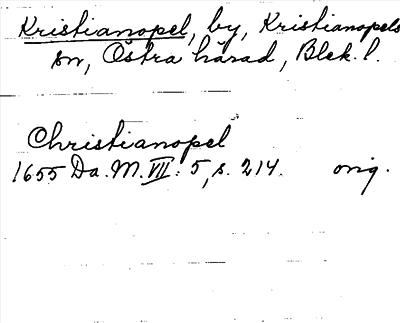 Kristianopel, by, Kristianopels
sn, Östra härad, Blek. l.
Christianopel
1655 Da. M. VII: 5, s. 214. orig.